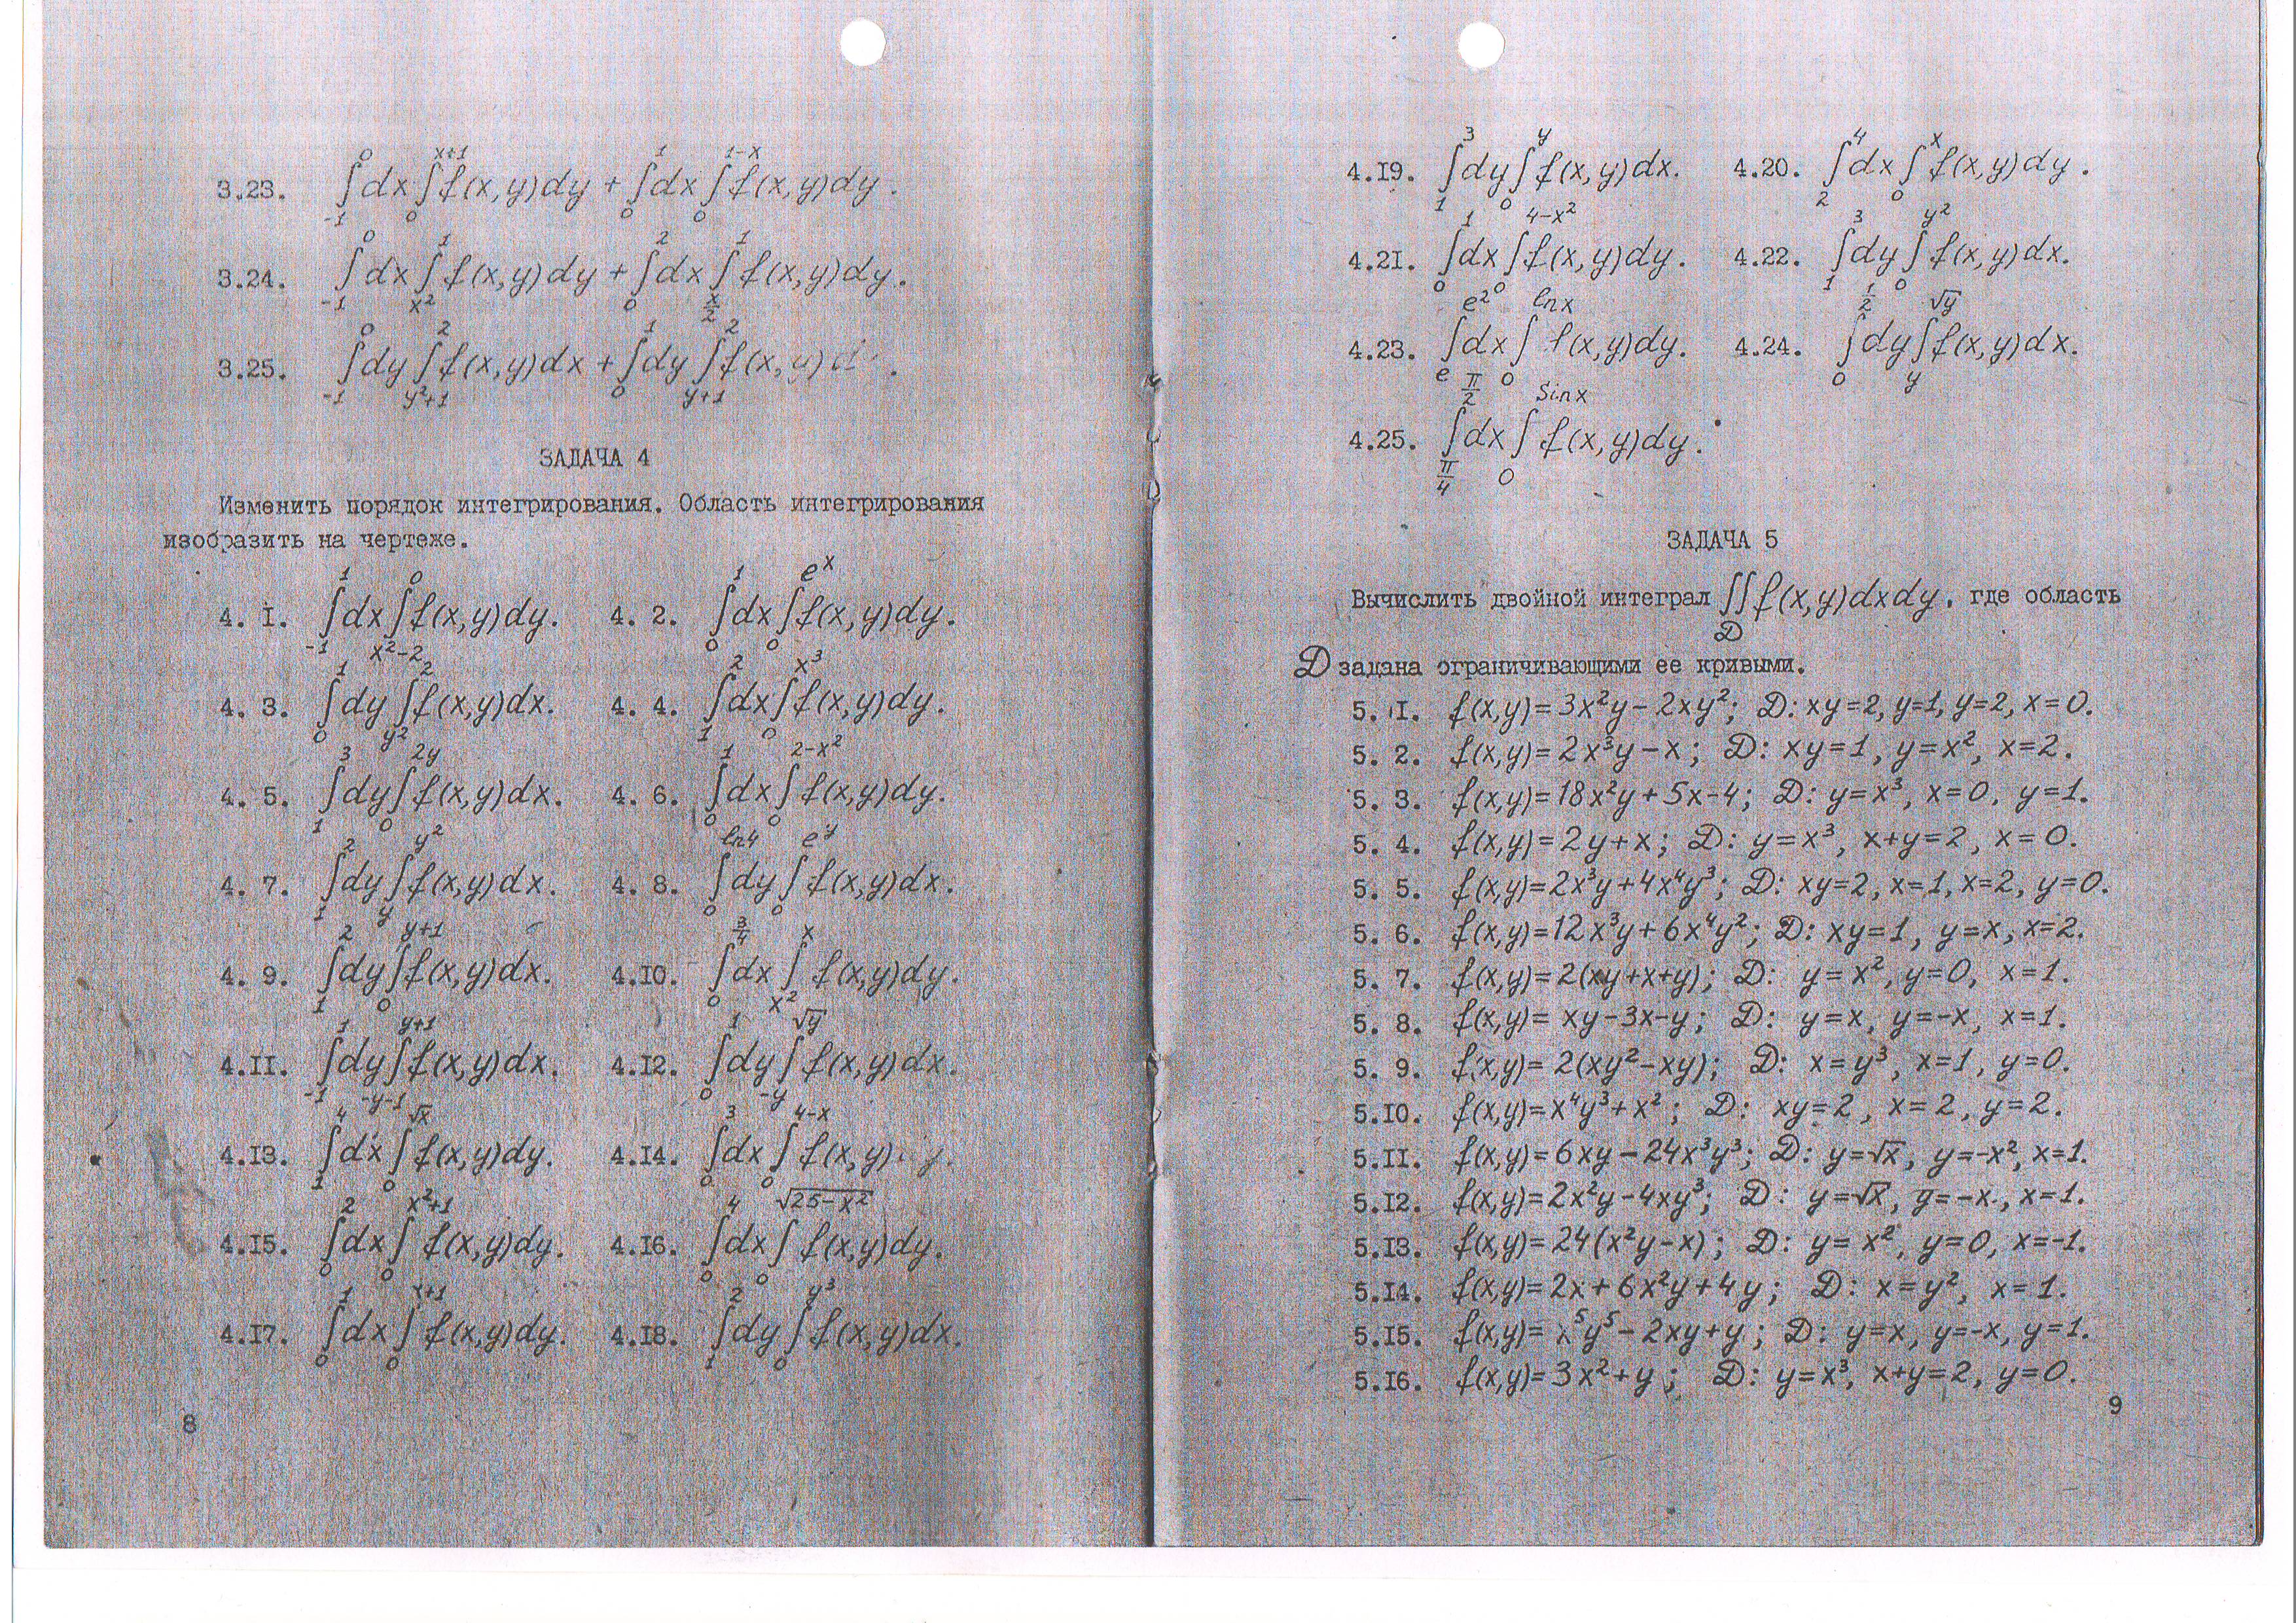 3.23. ∫₋₁⁰dx∫₀ˣ⁺¹f(x,y)dy + ∫₀¹dx∫₀¹⁻ˣf(x,y)dy.
3.24. ∫₋₁⁰dx∫_{x²}^{1}f(x,y)dy + ∫₀²dx∫_{x/2}^{1}f(x,y)dy.
3.25. ∫₋₁⁰dy∫_{y²+1}^{2}f(x,y)dx + ∫₀¹dy∫_{y+1}^{2}f(x,y)
ЗАДАЧА 4
Изменить порядок интегрирования. Область интегрирования
изобразить на чертеже.
4. I. ∫_{-1}^{1}dx∫_{x²-2}^{0}f(x,y)dy. 4. 2. ∫_{0}^{1}dx∫_{0}^{eˣ}f(x,y)dy.
4. 3. ∫_{0}^{1}dy∫_{y²}^{2}f(x,y)dx. 4. 4. ∫_{1}^{2}dx∫_{0}^{x³}f(x,y)dy.
4. 5. ∫_{1}^{3}dy∫_{0}^{2y}f(x,y)dx. 4. 6. ∫_{0}^{1}dx∫_{0}^{2-x²}f(x,y)dy.
4. 7. ∫_{1}^{2}dy∫_{y}^{y²}f(x,y)dx. 4. 8. ∫_{0}^{ln4}dy∫_{0}^{e^y}f(x,y)dx.
4. 9. ∫_{1}^{2}dy∫_{0}^{y+1}f(x,y)dx. 4.I0. ∫_{0}^{3/4}dx∫_{x²}^{x}f(x,y)dy.
4.II. ∫_{-1}^{1}dy∫_{-y-1}^{y+1}f(x,y)dx. 4.I2. ∫_{0}^{1}dy∫_{-y}^{√y}f(x,y)dx.
4.I3. ∫_{1}^{4}dx∫_{0}^{√x}f(x,y)dy. 4.I4. ∫_{0}^{3}dx∫_{0}^{4-x}f(x,y)
4.I5. ∫_{0}^{2}dx∫_{0}^{x²+1}f(x,y)dy. 4.I6. ∫_{0}^{4}dx∫_{0}^{√(25-x²)}f(x,y)dy.
4.I7. ∫_{0}^{1}dx∫_{0}^{x+1}f(x,y)dy. 4.I8. ∫_{1}^{2}dy∫_{0}^{y³}f(x,y)dx.
8
4.I9. ∫_{1}^{3}dy∫_{0}^{y}f(x,y)dx. 4.20. ∫_{2}^{4}dx∫_{0}^{x}f(x,y)dy.
4.2I. ∫_{0}^{1}dx∫_{0}^{4-x²}f(x,y)dy. 4.22. ∫_{1}^{3}dy∫_{0}^{y²}f(x,y)dx.
4.23. ∫_{e}^{e²}dx∫_{0}^{lnx}f(x,y)dy. 4.24. ∫_{0}^{1/2}dy∫_{y}^{√y}f(x,y)dx.
4.25. ∫_{π/4}^{π/2}dx∫_{0}^{Sinx}f(x,y)dy.
ЗАДАЧА 5
Вычислить двойной интеграл ∬_{D}f(x,y)dxdy, где область
D задана ограничивающими ее кривыми.
5. I. f(x,y)=3x²y-2xy²; D: xy=2, y=1, y=2, x=0.
5. 2. f(x,y)=2x³y-x; D: xy=1, y=x², x=2.
5. 3. f(x,y)=18x²y+5x-4; D: y=x³, x=0, y=1.
5. 4. f(x,y)=2y+x; D: y=x³, x+y=2, x=0.
5. 5. f(x,y)=2x³y+4x⁴y³; D: xy=2, x=1, x=2, y=0.
5. 6. f(x,y)=12x³y+6x⁴y²; D: xy=1, y=x, x=2.
5. 7. f(x,y)=2(xy+x+y); D: y=x², y=0, x=1.
5. 8. f(x,y)=xy-3x-y; D: y=x, y=-x, x=1.
5. 9. f(x,y)=2(xy²-xy); D: x=y³, x=1, y=0.
5.I0. f(x,y)=x⁴y³+x²; D: xy=2, x=2, y=2.
5.II. f(x,y)=6xy-24x³y³; D: y=√x, y=-x², x=1.
5.I2. f(x,y)=2x²y-4xy³; D: y=√x, y=-x, x=1.
5.I3. f(x,y)=24(x²y-x); D: y=x², y=0, x=-1.
5.I4. f(x,y)=2x+6x²y+4y; D: x=y², x=1.
5.I5. f(x,y)=x⁵y⁵-2xy+y; D: y=x, y=-x, y=1.
5.I6. f(x,y)=3x²+y; D: y=x³, x+y=2, y=0.
9